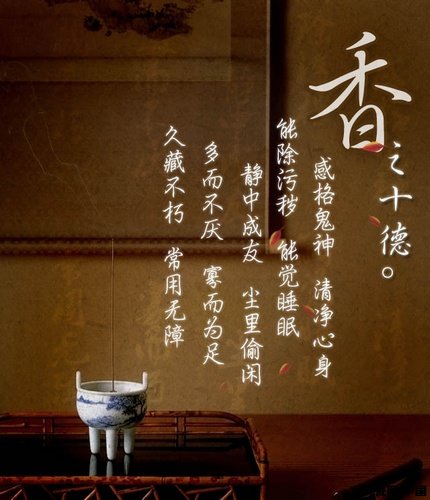 香之十德。
感格鬼神 清净心身
能除污秽 能觉睡眠
静中成友 尘里偷闲
多而不厌 寡而为足
久藏不朽 常用无障